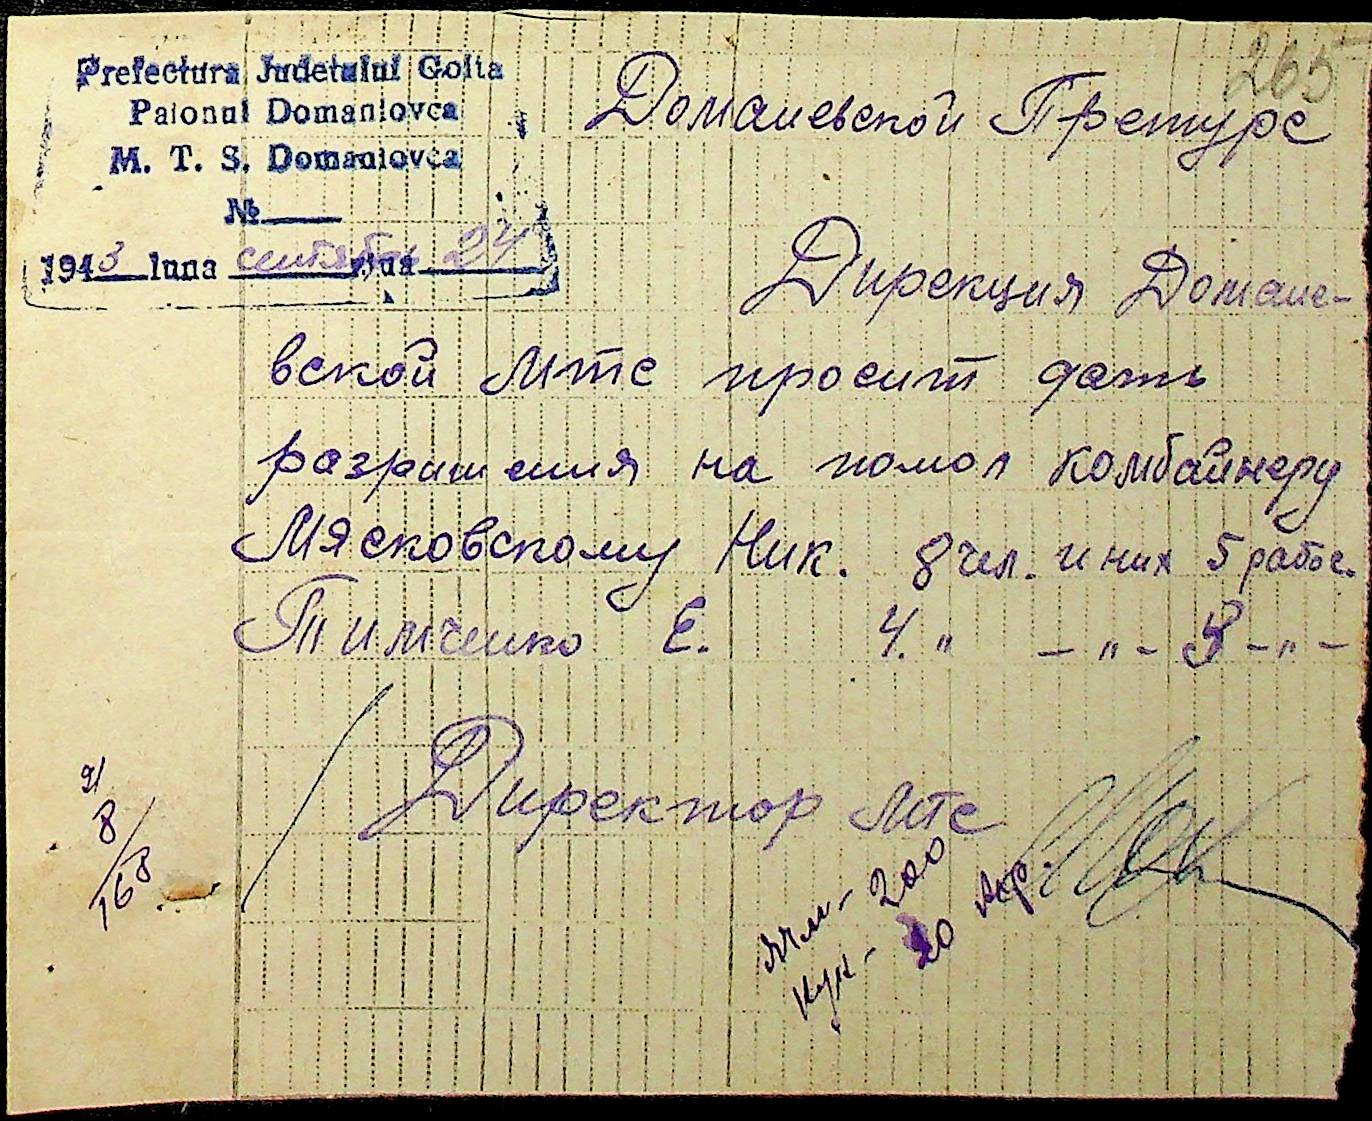 265
Prefectura Judetului Golta
Raionul Domaniovca
M. T. S. Domaniovca
№
1943 luna сентября ziua 24
Доманевской Претуре
Дирекция Домане-
вской Мтс просит дать
разришения на помол комбайнеру
Мясковскому Ник. 8 чел. и них 5 рабоч.
Тимченко Е. 4. " - " - 3 - " -
Директор Мтс
91
8/168
Ячм - 200
Кук - 20